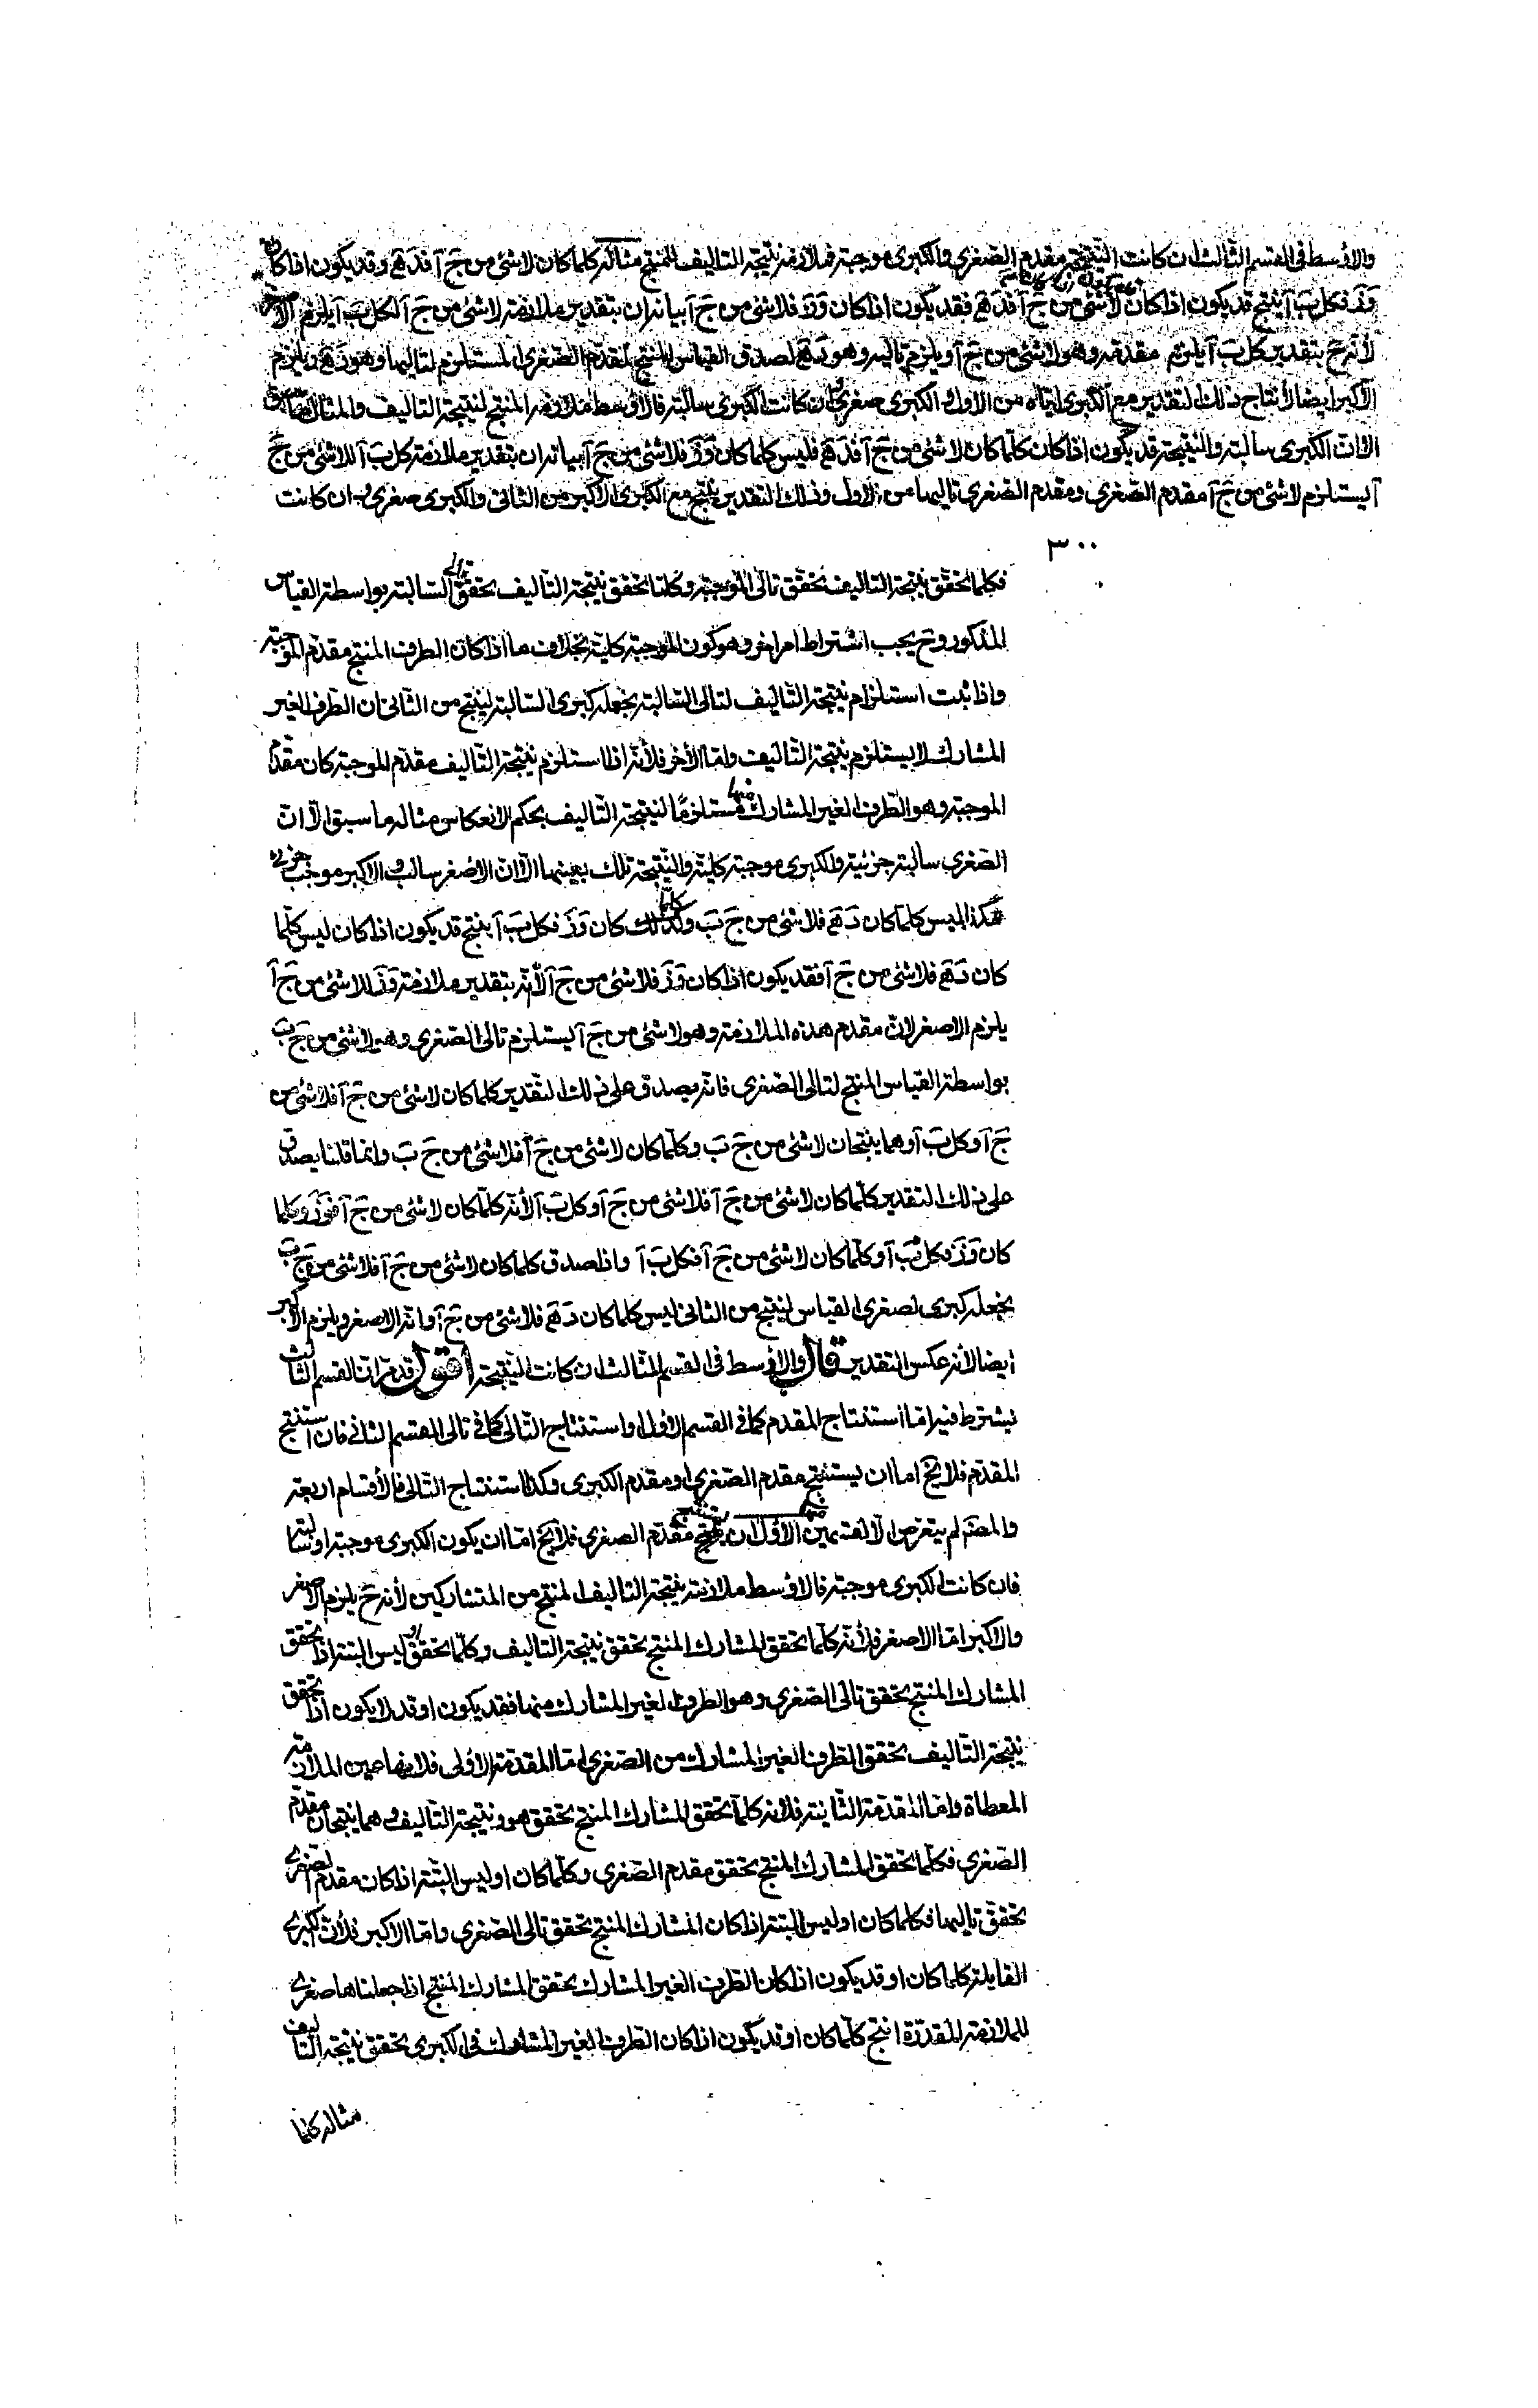 والأوسط في القسم الثالث ان كانت النتيجة مقدم الصغرى والكبرى موجبة فملازمة نتيجة التاليف للمنتج مثاله كلما كان لا شئ من ج آ فد ه وقد يكون اذا كان
و ز فكل ب آ ينتج قد يكون اذا كان لا شئ من ج آ فد ه فقد يكون اذا كان و ز فلا شئ من ج آ بيانه ان بتقدير ملازمة لا شئ من ج آ لكل ب آ يلزم الاصغر
لأنه ح بتقدير كل ب آ يلزم مقدمه وهو لا شئ من ج آ ويلزم تاليه وهو د ه لصدق القياس المنتج لمقدم الصغرى المستلزم لتاليها وهو د ه ويلزم
الاكبر ايضا لأنتاج ذلك التقدير مع الكبرى اياه من الاول والكبرى صغرى وان كانت الكبرى سالبة فالاوسط ملازمة المنتج لنتيجة التاليف والمثال المثال
الا ان الكبرى سالبة والنتيجة قد يكون اذا كان كلما كان لا شئ من ج آ فد ه فليس كلما كان و ز فلا شئ من ج آ بيانه ان بتقدير ملازمة كل ب آ للا شئ من ج
آ يستلزم لا شئ من ج آ مقدم الصغرى ومقدم الصغرى تاليها من الاول وذلك التقدير ينتج مع الكبرى الاكبر من الثاني والكبرى صغرى وان كانت
٣٠٠
فكلما تحقق نتيجة التاليف تحقق تالى الموجبة وكلما تحقق نتيجة التاليف تحقق تالى السالبة بواسطة القياس
المذكور وح يجب اشتراط امر اخر وهو كون الموجبة كلية بخلاف ما اذا كان الطرف المنتج مقدم الموجبة
واذا ثبت استلزام نتيجة التاليف لتالى السالبة بجعله كبرى السالبة لينتج من الثاني ان الطرف الغير
المشارك لا يستلزم نتيجة التاليف واما الأخر فلأنه اذا استلزم نتيجة التاليف مقدم الموجبة كان مقدم
الموجبة وهو الطرف الغير المشارك منها مستلزما لنتيجة التاليف بحكم الانعكاس مثاله ما سبق الا ان
الصغرى سالبة جزئية والكبرى موجبة كلية والنتيجة تلك بعينها الا ان الأصغر سالب والاكبر موجب جزئى
هكذا ليس كلما كان د ه فلا شئ من ج ب وكلما كان و ز فكل ب آ ينتج قد يكون اذا كان ليس كلما
كان د ه فلا شئ من ج آ فقد يكون اذا كان و ز فلا شئ من ج آ لأنه بتقدير ملازمة و ز للا شئ من ج آ
يلزم الاصغر لان مقدم هذه الملازمة وهو لا شئ من ج آ يستلزم تالى الصغرى وهو لا شئ من ج ب
بواسطة القياس المنتج لتالى الصغرى فانه يصدق على ذلك التقدير كلما كان لا شئ من ج آ فلا شئ من
ج آ وكل ب آ وهما ينتجان لا شئ من ج ب وكلما كان لا شئ من ج آ فلا شئ من ج ب وانما قلنا يصدق
على ذلك التقدير كلما كان لا شئ من ج آ فلا شئ من ج آ وكل ب آ لأنه كلما كان لا شئ من ج آ فو ز وكلما
كان و ز فكل ب آ وكلما كان لا شئ من ج آ فكل ب آ واذا صدق كلما كان لا شئ من ج آ فلا شئ من ج ب
بجعله كبرى لصغرى القياس لينتج من الثاني ليس كلما كان د ه فلا شئ من ج آ وانه الاصغر ويلزم الاكبر
ايضا لأنه عكس التقدير قال والاوسط في القسم الثالث ان كانت النتيجة اقول قد مر ان القسم الثالث
يشترط فيه اما استنتاج المقدم كما في القسم الأول او استنتاج التالى كما في تالى القسم الثاني فان استنتج
المقدم فلا يخ اما ان يستنتج مقدم الصغرى او مقدم الكبرى وكذا استنتاج التالى فالأقسام اربعة
والمصنف لم يتعرض الا لقسمين منها الأول ان يستنتج مقدم الصغرى فلا يخ اما ان يكون الكبرى موجبة او سالبة
فان كانت الكبرى موجبة فالاوسط ملازمة نتيجة التاليف المنتج من المتشاركين لأنه ح يلزم الاصغر
والاكبر اما الاصغر فلأنه كلما تحقق المشارك المنتج تحقق نتيجة التاليف وكلما تحقق او ليس البتة اذا تحقق
المشارك المنتج تحقق تالى الصغرى وهو الطرف الغير المشارك منها فقد يكون او قد لا يكون اذا تحقق
نتيجة التاليف تحقق الطرف الغير المشارك من الصغرى اما المقدمة الأولى فلانها عين الملازمة
المعطاة واما المقدمة الثانية فلانه كلما تحقق المشارك المنتج تحقق هو ونتيجة التاليف وهما ينتجان مقدم
الصغرى فكلما تحقق المشارك المنتج تحقق مقدم الصغرى وكلما كان او ليس البتة اذا كان مقدم الصغرى
تحقق تاليها فكلما كان او ليس البتة اذا كان المشارك المنتج تحقق تالى الصغرى واما الاكبر فلأن الكبرى
القايلة كلما كان او قد يكون اذا كان الطرف الغير المشارك تحقق المشارك المنتج اذا جعلناها صغرى
للملازمة المقدرة انتج كلما كان او قد يكون اذا كان الطرف الغير المشارك في الكبرى تحقق نتيجة التاليف
مثاله كلما